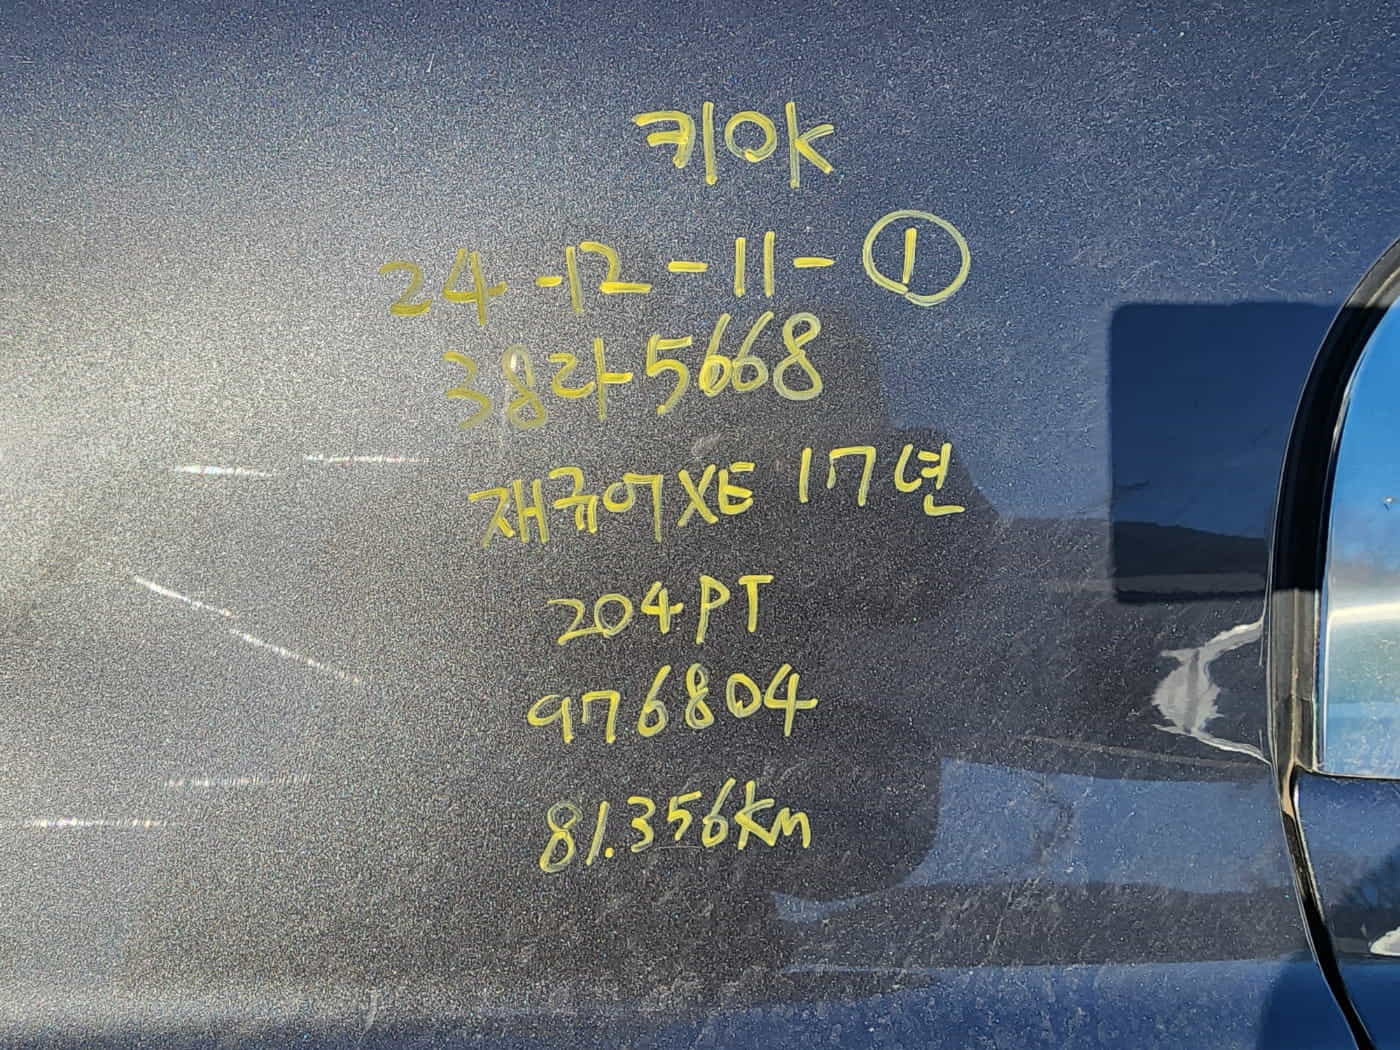 키OK
24-12-11-①
38라5668
재규어XE 17년
204PT
976804
81.356km